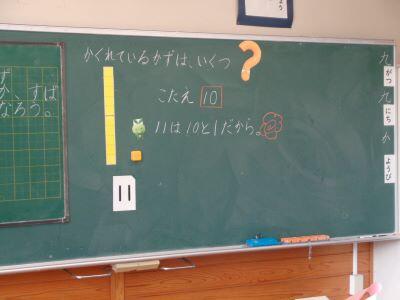 よう
かくれているかずは、いくつ?
こたえ 10
11は10と1だから。
11
ず
か、すば
なろう。
九
がつ
九
にち
か
ようび